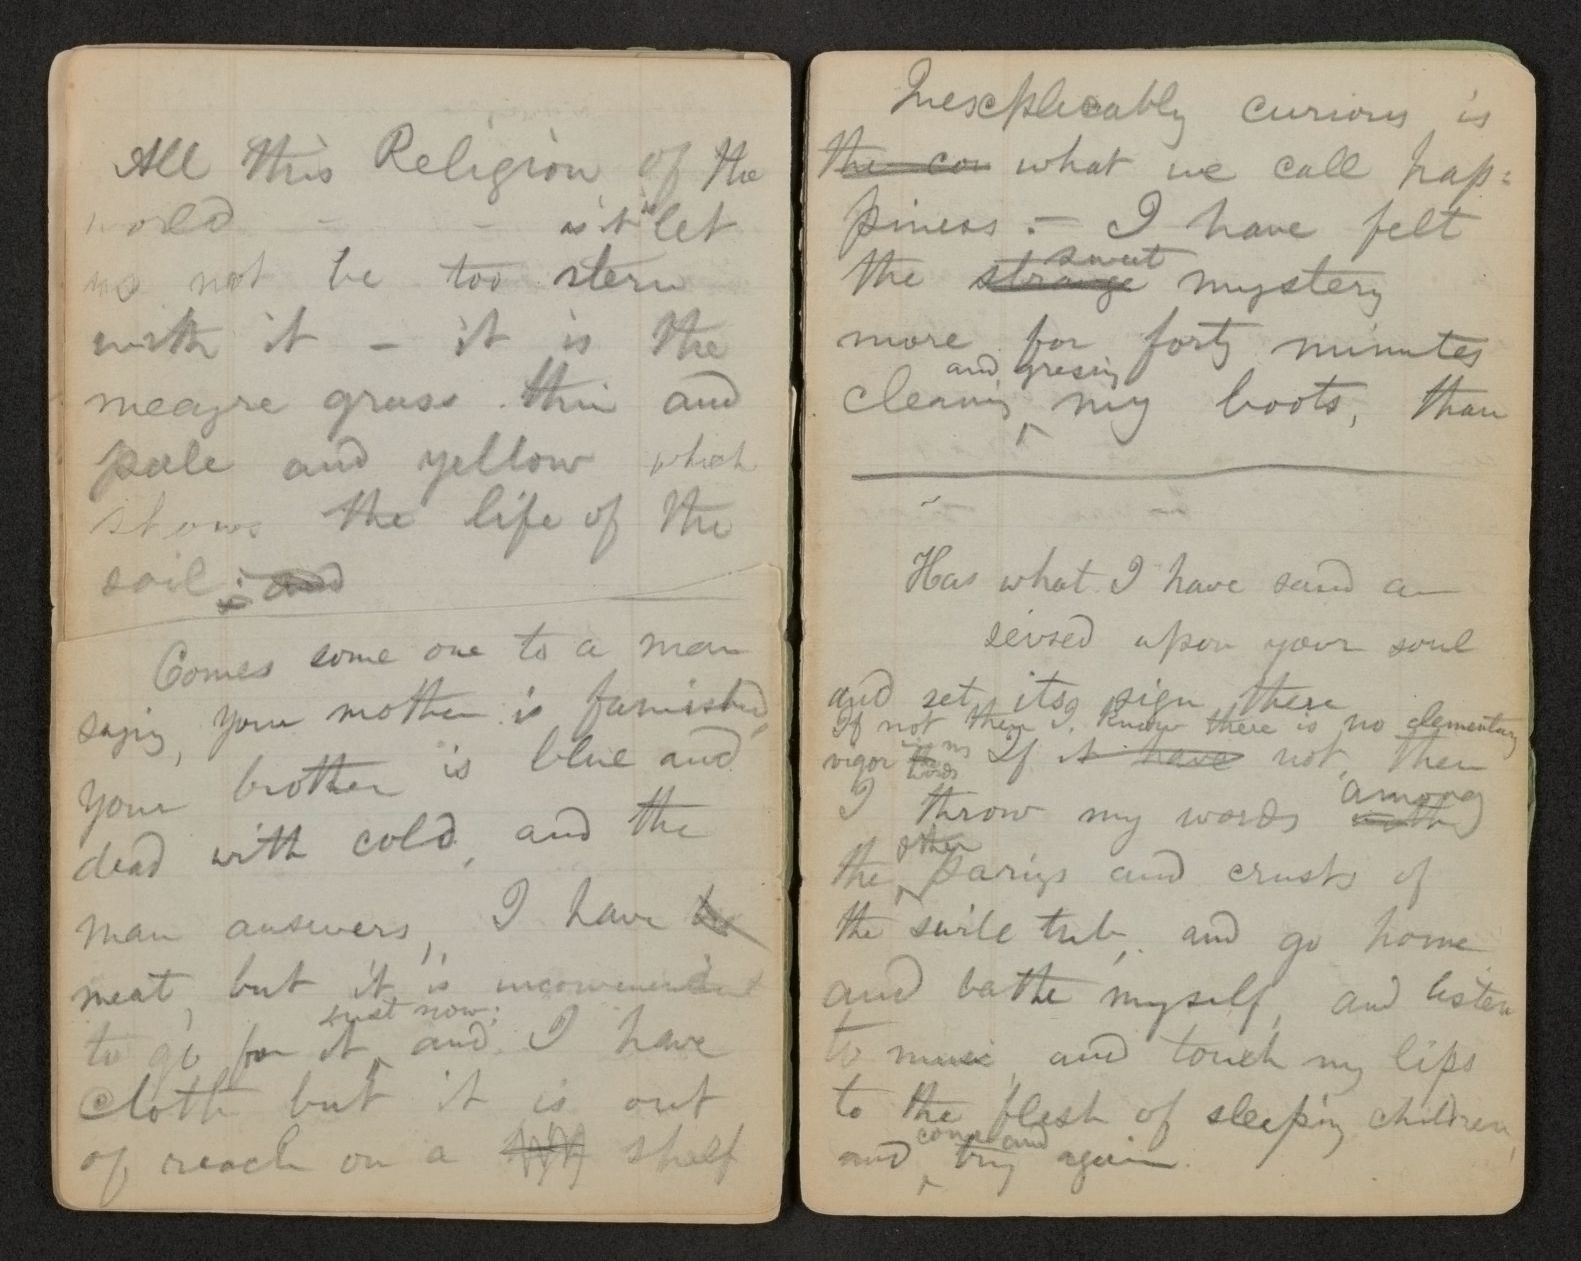 All this Religion of the
world — — is it "let
us not be too stern
with it — it is the
meagre grass thin and
pale and yellow which
shows the life of the
soil; and
Comes some one to a man
saying, your mother is famished,
your brother is blue and
dead with cold, and the
man answers, I have
meat, but it is inconvenient
just now;
to go for it, and I have
cloth but it is out
of reach on a high shelf
Inexplicably curious is
the con what we call hap=
piness. — I have felt
sweet
the strange mystery
more for forty minutes
and gresing
cleaning my boots, than
Has what I have said
seized upon your soul
and set its sign there
If not then I know there is no elementary
vigor in my words If it have not, then
among
I throw my words with
other
the parings and crusts of
the swile tub, and go home
and bathe myself, and listen
to music, and touch my lips
to the flesh of sleeping children,
come and
and try again.